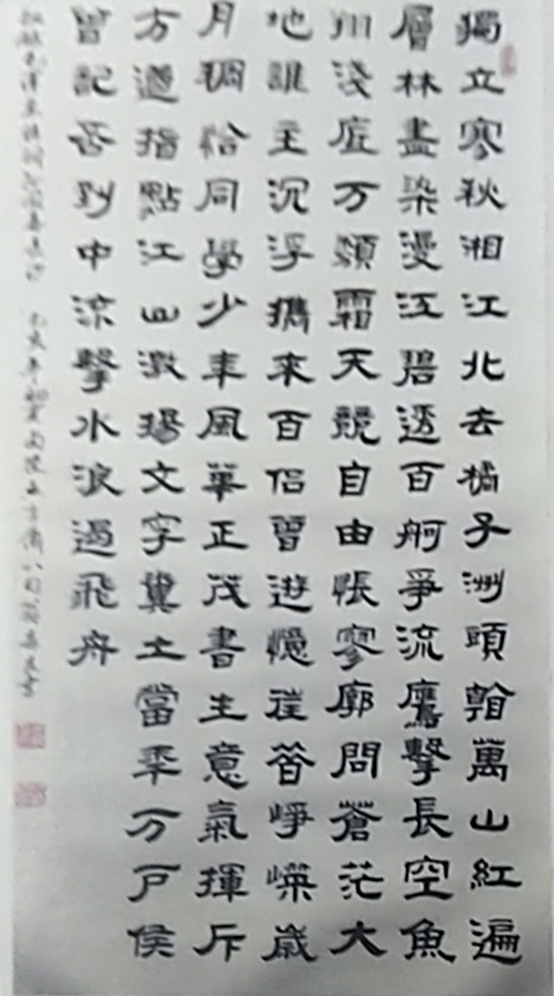 獨立寒秋湘江北去橘子洲頭看萬山紅遍
層林盡染漫江碧透百舸爭流鷹擊長空魚
翔淺底万類霜天競自由悵寥廓問蒼茫大
地誰主沉浮攜來百侶曾遊憶往昔崢嶸歲
月稠恰同學少年風華正茂書生意氣揮斥
方遒指點江山激揚文字糞土當年万戶侯
曾記否到中流擊水浪遏飛舟
毛澤東詩詞沁園春長沙